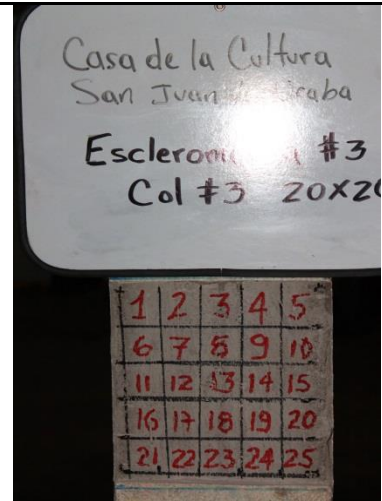 Casa de la Cultura
San Juan
#3
Col #3 20x20
1 2 3 4 5
6 7 8 9 10
11 12 13 14 15
16 17 18 19 20
21 22 23 24 25